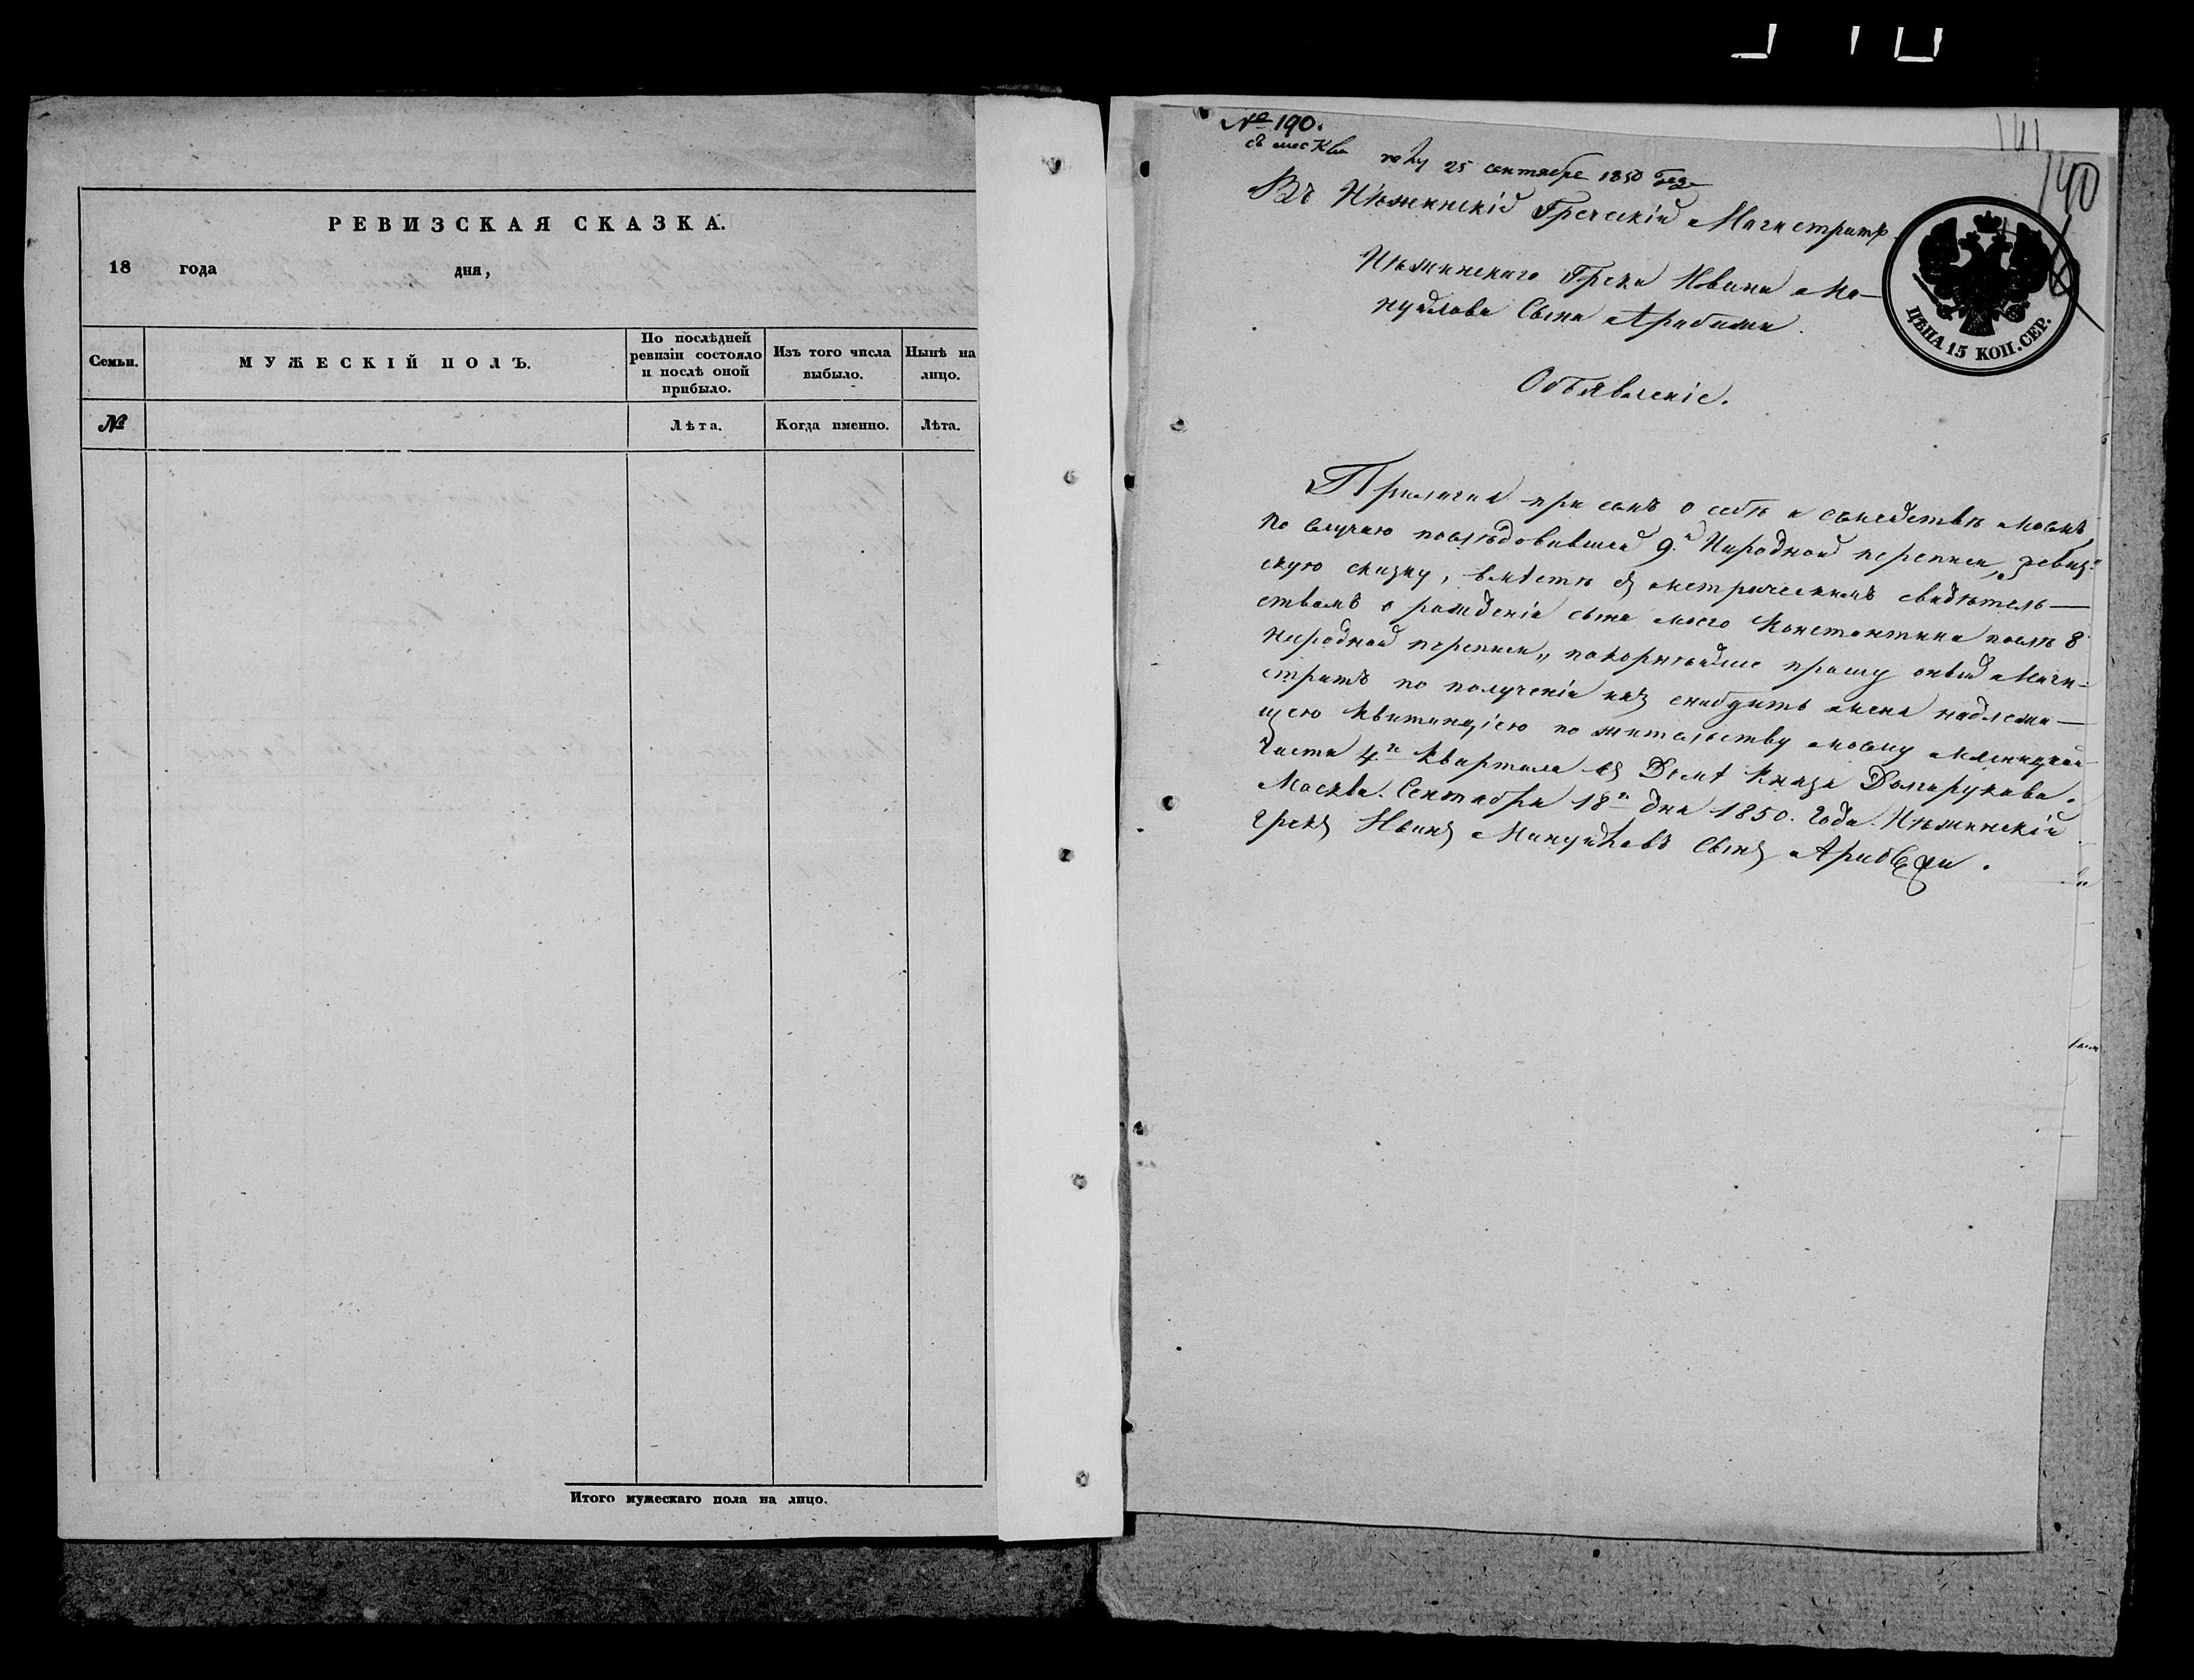 РЕВИЗСКАЯ СКАЗКА.
18 года дня,
Семьи.
МУЖЕСКІЙ ПОЛЪ.
По послѣдней ревизіи состояло и послѣ оной прибыло.
Изъ того числа выбыло.
Нынѣ на лицо.
№
Лѣта.
Когда именно.
Лѣта.
Итого мужескаго пола на лицо.
№ 190.
25 сентября 1850
141
140
Въ Нѣжинскій Греческій Магистратъ.
Нѣжинскаго Грека Ивана Ма-
нуйлова Сына
ЦѢНА 15 КОП. СЕР.
Объявленіе.
Прилагая при семъ о себѣ и семействѣ моемъ
по случаю послѣдовавшей 9й Народной переписи, ревиз-
скую сказку, вмѣстѣ съ метрическимъ свидѣтель-
ствомъ о рожденіи сына моего Константина послѣ 8
народной переписи, покорнѣйше прошу оный Маги-
стратъ по полученіи ихъ снабдить меня надлежа-
щею Квитанціею по жительству моему Мясницкой
части 4го Квартала въ Домѣ Князя
Москва. Сентября 18го дня 1850. Года. Нѣжинскій
грекъ Иванъ Мануйловъ Сынъ